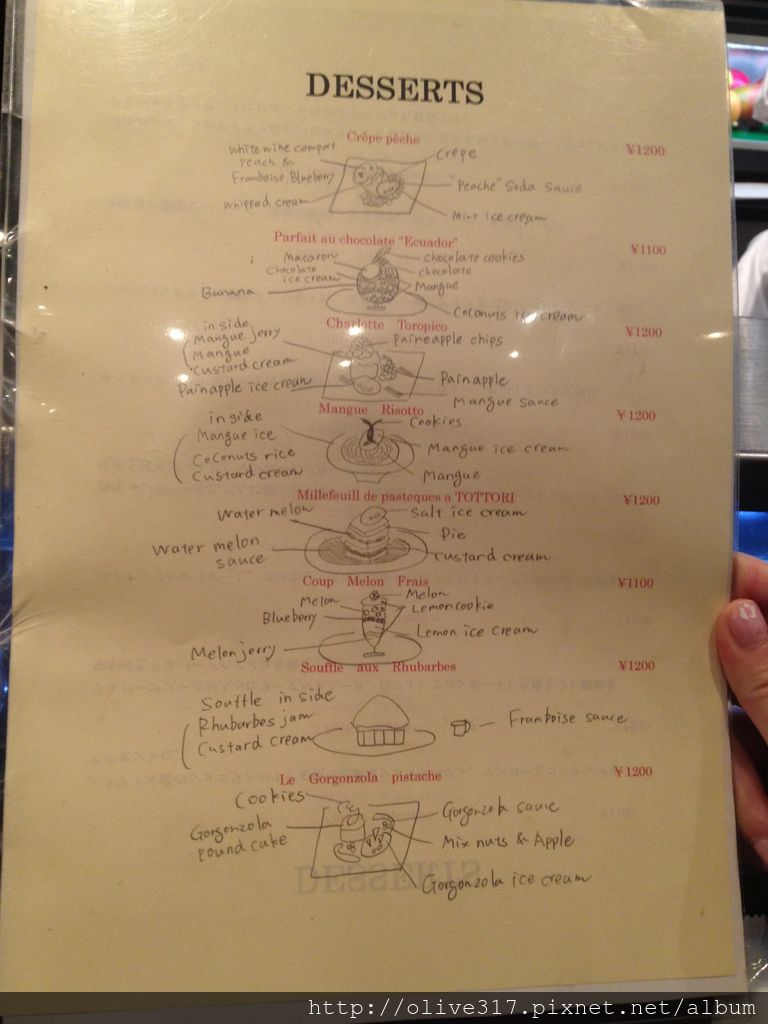 DESSERTS
Crêpe pêche ¥1200
White wine comport
Peach &
Framboise, Blueberry
Whipped cream
Crepe
"Peache" Soda sauce
Mint ice cream
Parfait au chocolate "Ecuador" ¥1100
Macaron
Chocolate
ice cream
Banana
Chocolate cookies
chocolate
Mangue
Coconuts ice cream
Charlotte Toropico ¥1200
in side
Mangue jerry
Mangue
Custard cream
Painapple ice cream
Paineapple chips
Painapple
Mangue sauce
Mangue Risotto ¥1200
inside
Mangue ice
Coconuts rice
Custard cream
Cookies
Mangue ice cream
Mangue
Millefeuill de pasteques a TOTTORI ¥1200
Water melon
Water melon
sauce
Salt ice cream
Pie
Custard cream
Coup Melon Frais ¥1100
Melon
Blueberry
Melon jerry
Melon
Lemon cookie
Lemon ice cream
Souffle aux Rhubarbes ¥1200
Souffle in side
Rhubarbes jam
Custard cream
Framboise sauce
Le Gorgonzola pistache ¥1200
Cookies
Gorgonzola
pound cake
Gorgonzola sauce
Mix nuts & Apple
Gorgonzola ice cream
DESSERTS
http://olive317.pixnet.net/album